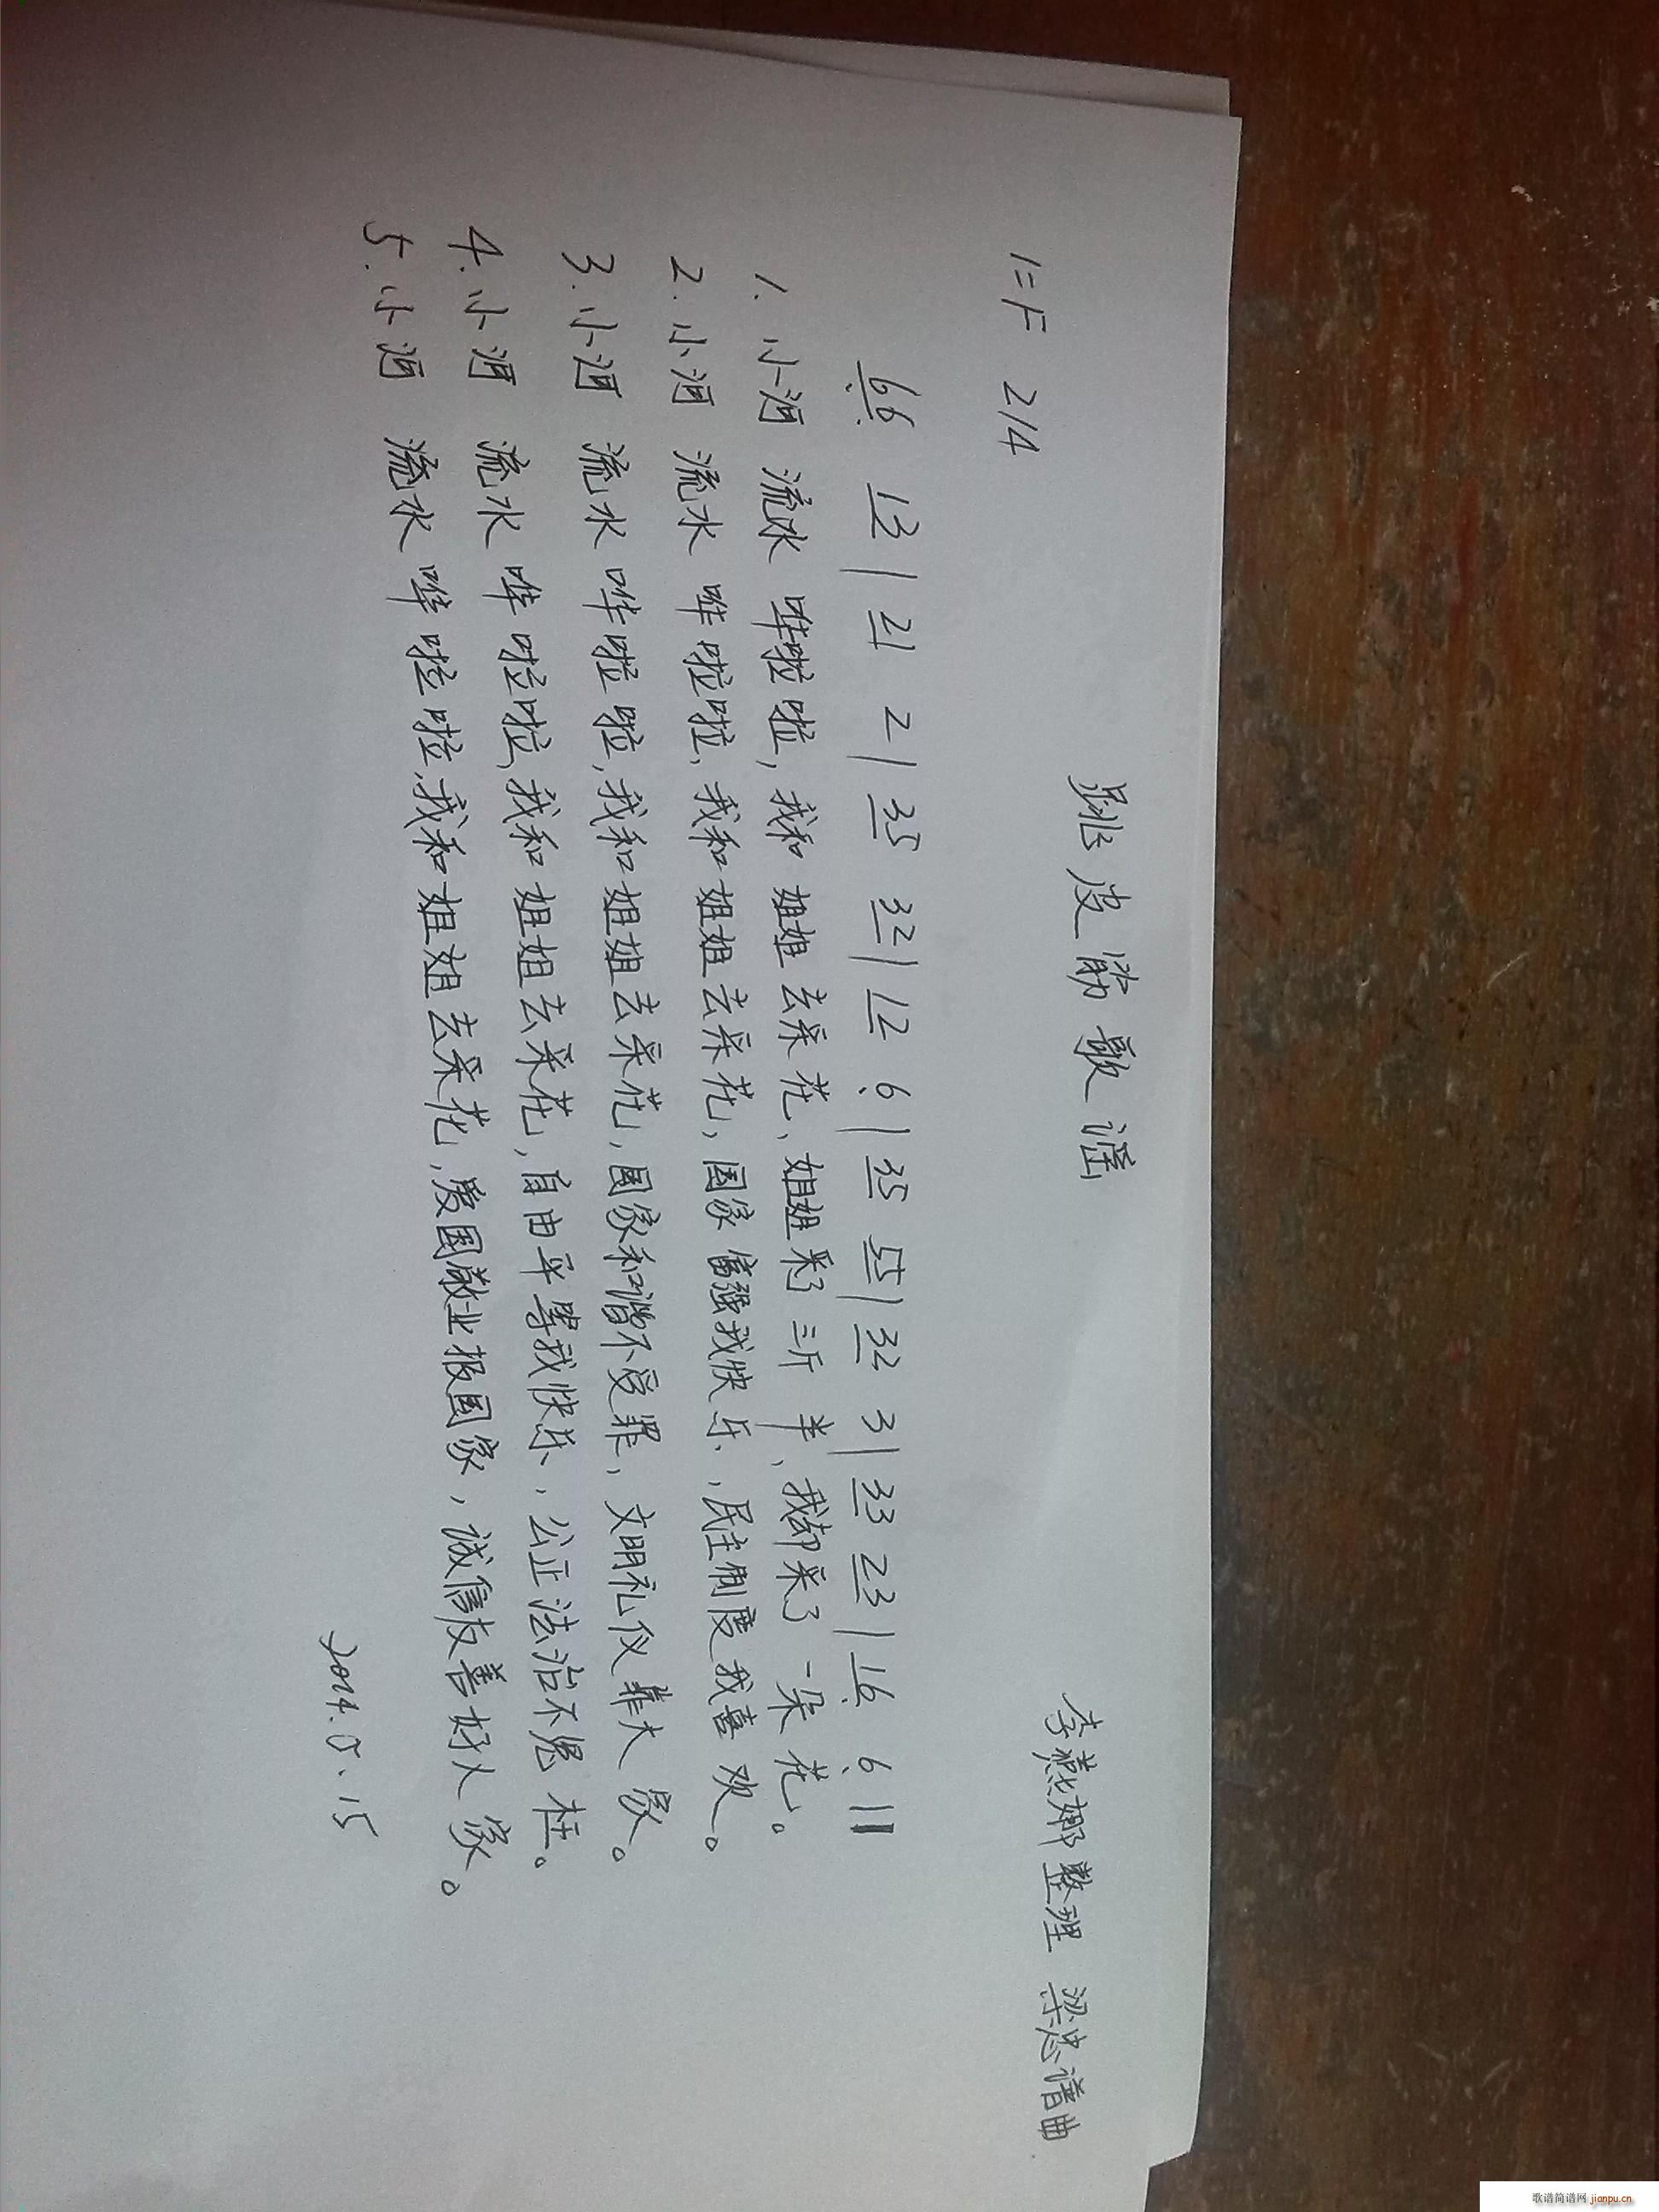 跳皮筋歌谣
李燕娜整理 梁忠谱曲
1=F 2/4
66 13 | 21 2 | 35 32 | 12 6 | 35 55 | 32 3 | 33 23 | 16 6 ‖
1. 小河 流水 哗啦啦, 我和 姐姐 去采花、姐姐采了三斤 半、我却采了一朵花。
2. 小河 流水 哗啦啦、我和姐姐去采花, 国家富强我快乐, 民主制度我喜欢。
3. 小河 流水 哗啦啦, 我和姐姐去采花, 国家和谐不受罪, 文明礼仪靠大家。
4. 小河 流水 哗啦啦, 我和姐姐去采花, 自由平等我快乐, 公正法治不冤枉。
5. 小河 流水 哗啦啦, 我和姐姐去采花, 爱国敬业报国家, 诚信友善好人家。
歌谱简谱网 jianpu.cn